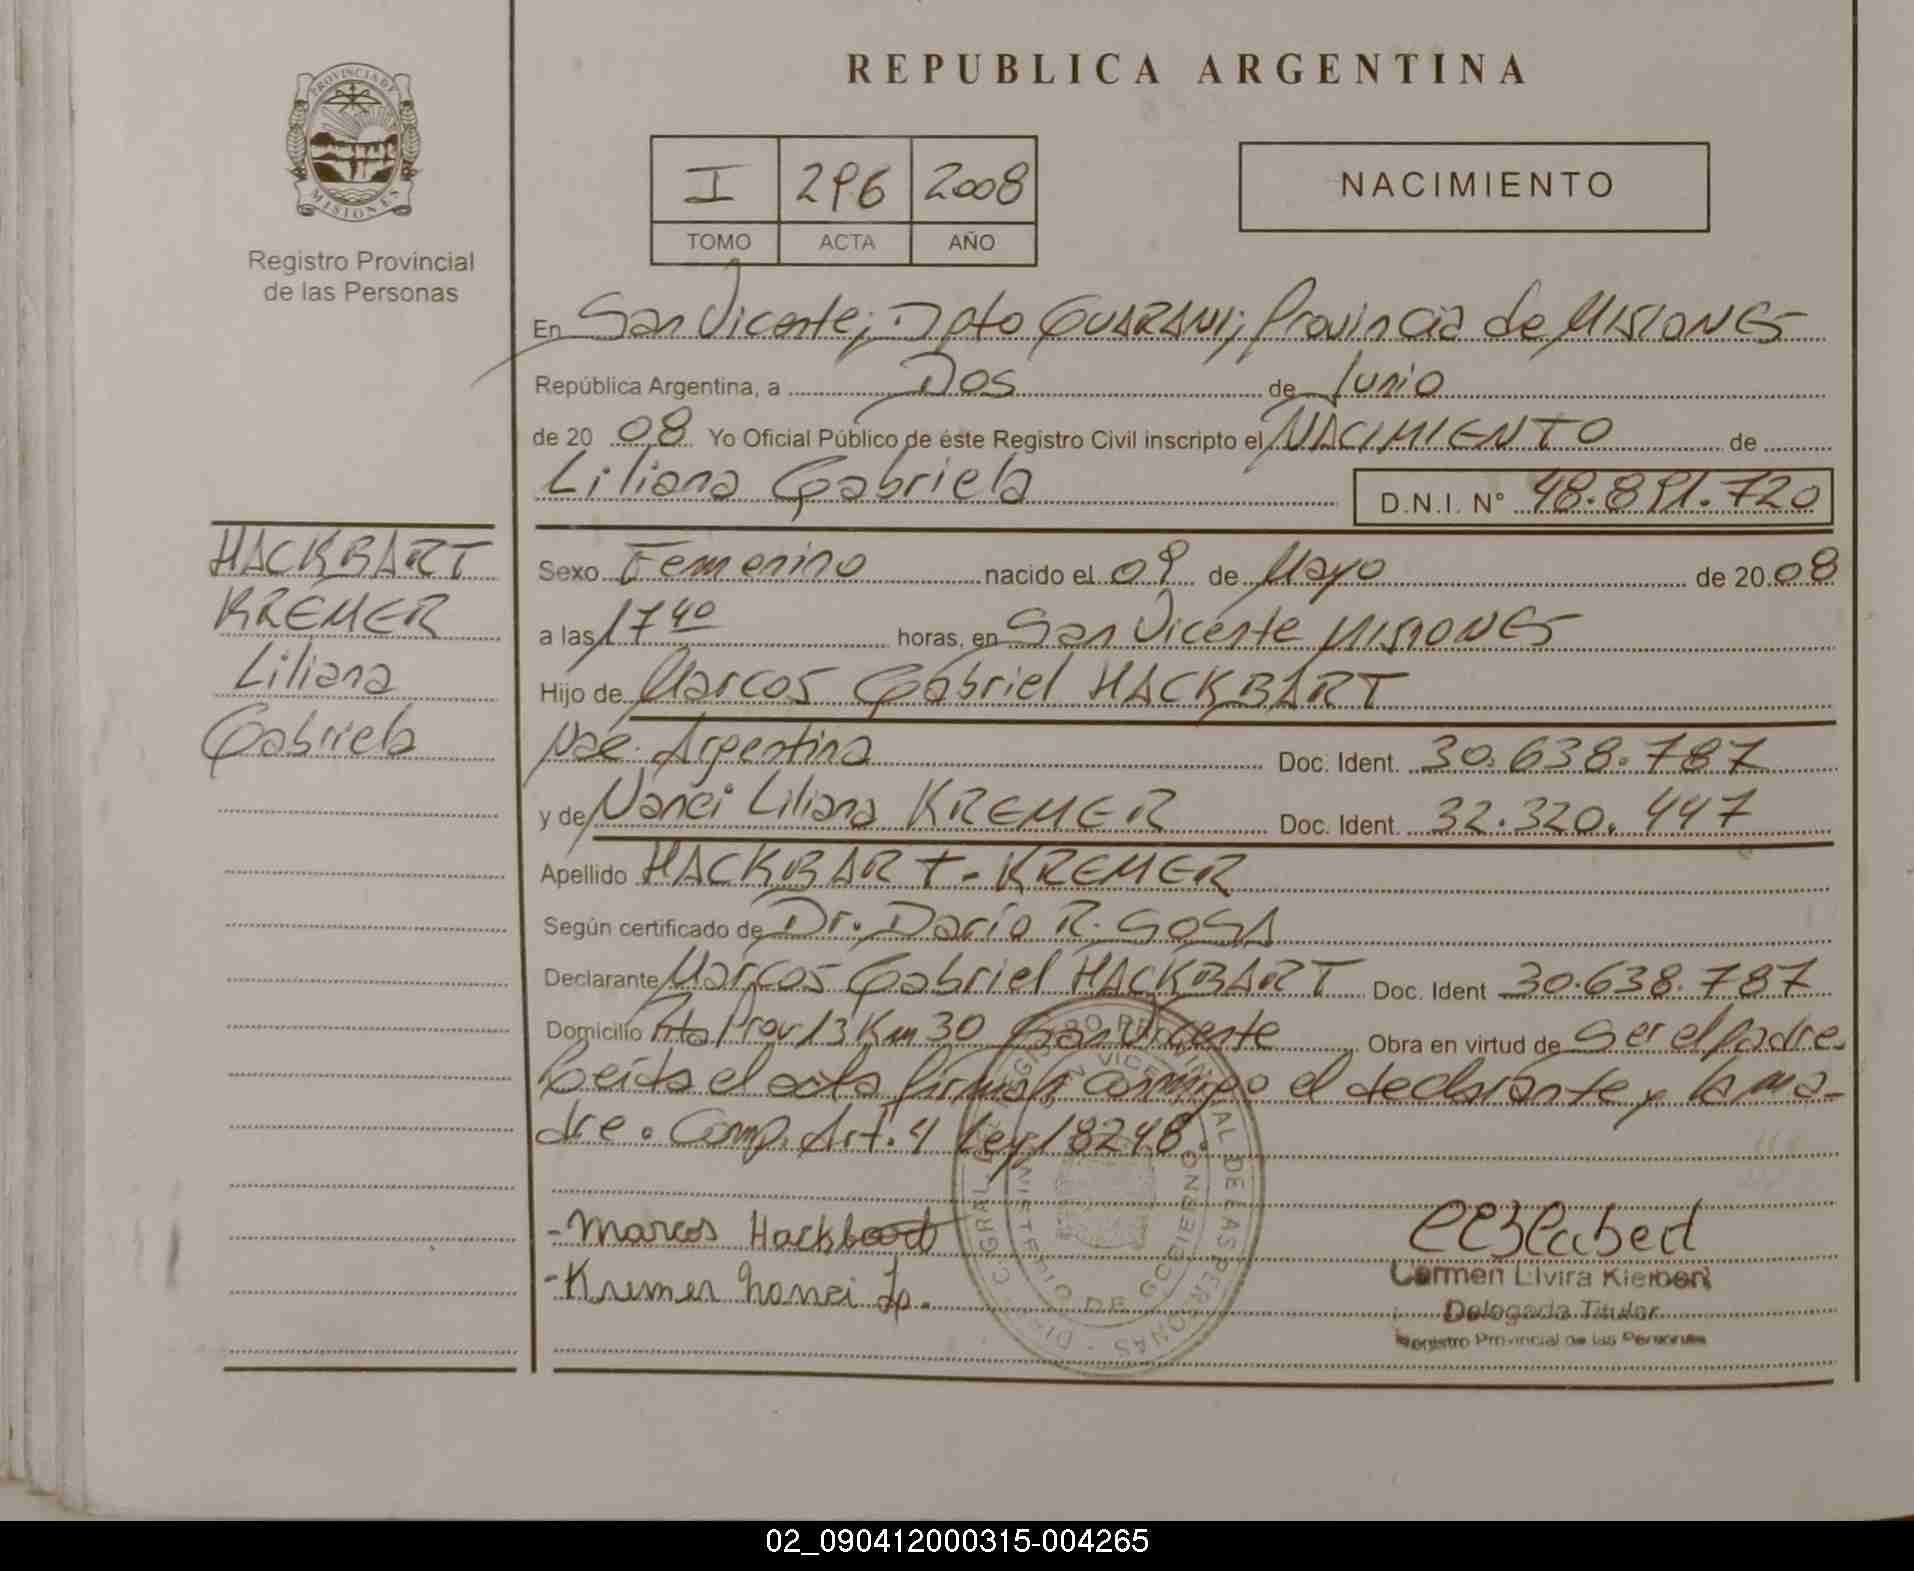 REPUBLICA ARGENTINA
PROVINCIA DE
MISIONES
Registro Provincial
de las Personas
I 296 2008
TOMO ACTA AÑO
NACIMIENTO
En San Vicente; Dpto GUARANI; Provincia de MISIONES
República Argentina, a Dos de Junio
de 20 08 Yo Oficial Público de este Registro Civil inscripto el NACIMIENTO de
Liliana Gabriela D.N.I. N° 48.891.720
HACKBART
KREMER
Liliana
Gabriela
Sexo Femenino nacido el 09 de Mayo de 20 08
a las 17 40 horas, en San Vicente MISIONES
Hijo de Marcos Gabriel HACKBART
Nac. Argentina Doc. Ident. 30.638.787
y de Nanci Liliana KREMER Doc. Ident. 32.320.447
Apellido HACKBART - KREMER
Según certificado de Dr. Darío R. SOSA
Declarante Marcos Gabriel HACKBART Doc. Ident 30.638.787
Domicilio Rta Prov 13 Km 30 San Vicente Obra en virtud de Ser el padre.
Leída el acta firman conmigo el declarante y la ma-
dre. Comp. Art. 4 Ley 18248.
- Marcos Hackbart
- Kremer Nanci L.
Carmen Elvira
Delegada Titular
Registro Provincial de las Personas
02_090412000315-004265